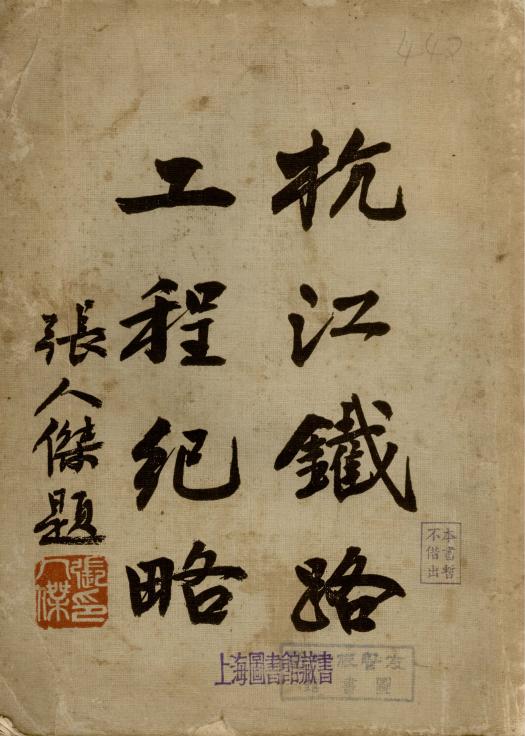 杭江鐵路
工程紀略
張人傑題
張印人傑
本書暫
不借出
上海圖書館藏書
442